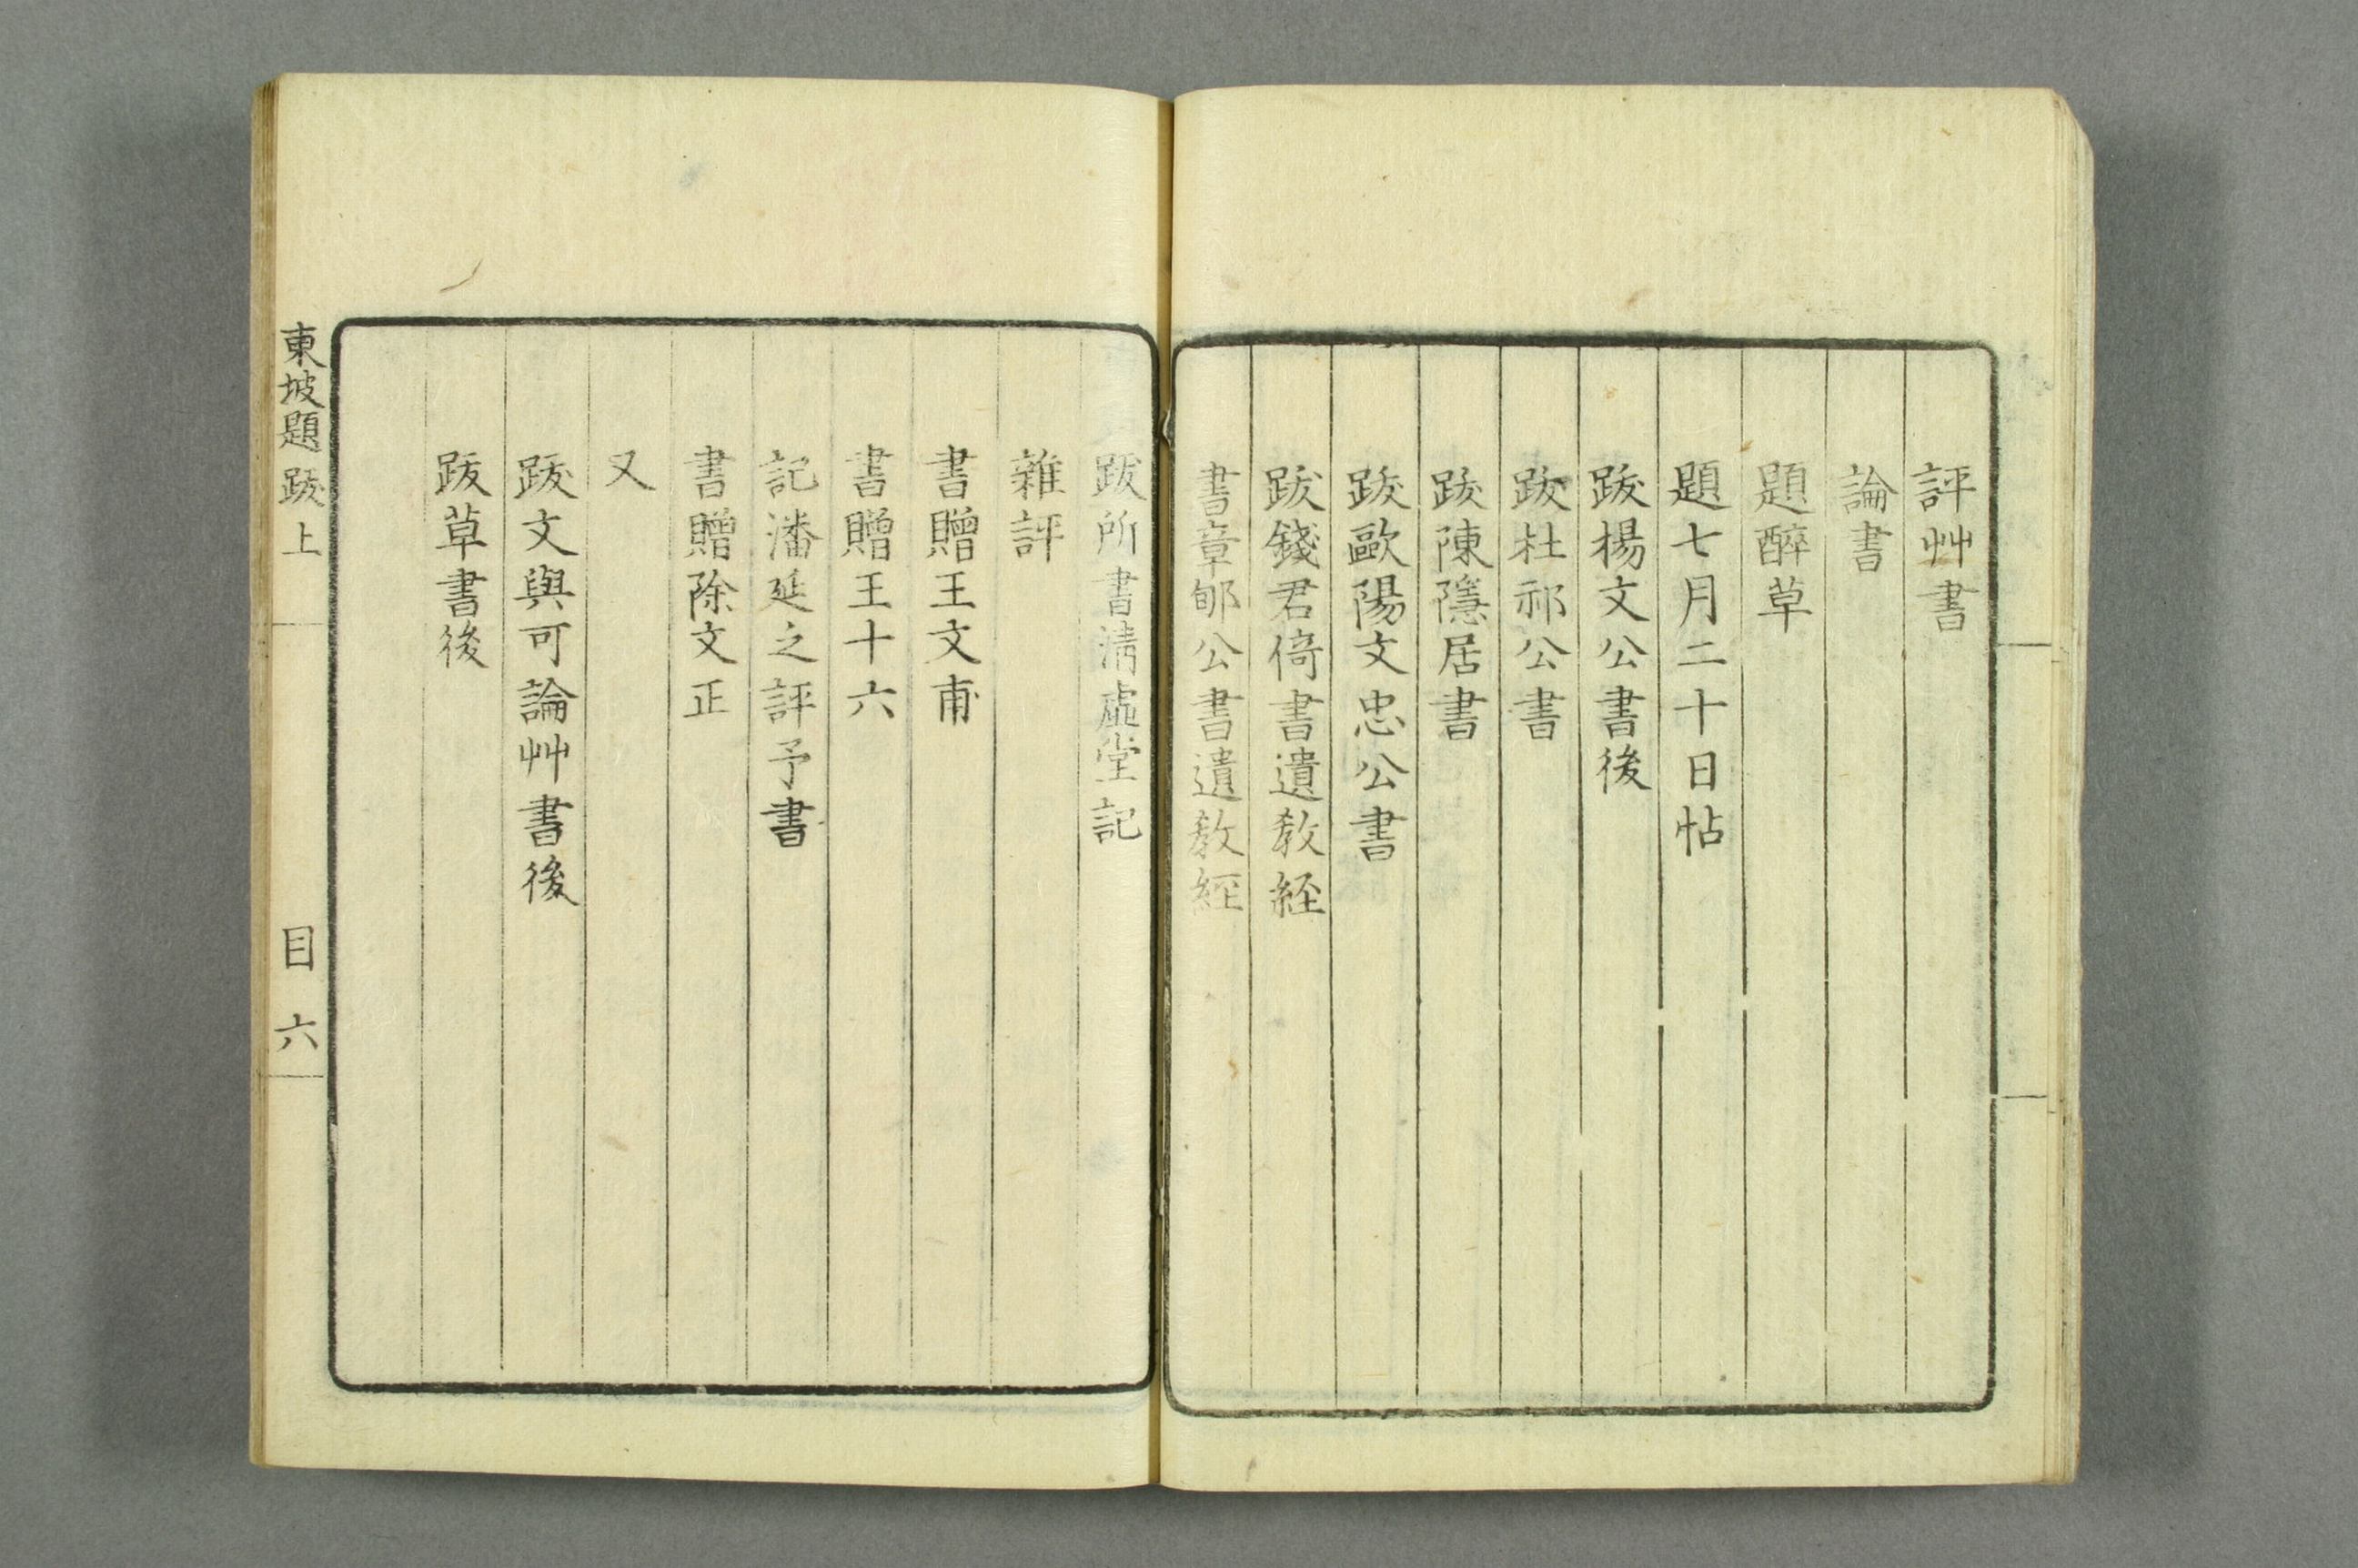 評艸書
論書
題醉草
題七月二十日帖
跋楊文公書後
跋杜祁公書
跋陳隱居書
跋歐陽文忠公書
跋錢君倚書遺教経
書章郇公書遺教経
跋所書淸虛堂記
雜評
書贈王文甫
書贈王十六
記潘延之評予書
書贈除文正
又
跋文與可論艸書後
跋草書後
東坡題跋上
目六